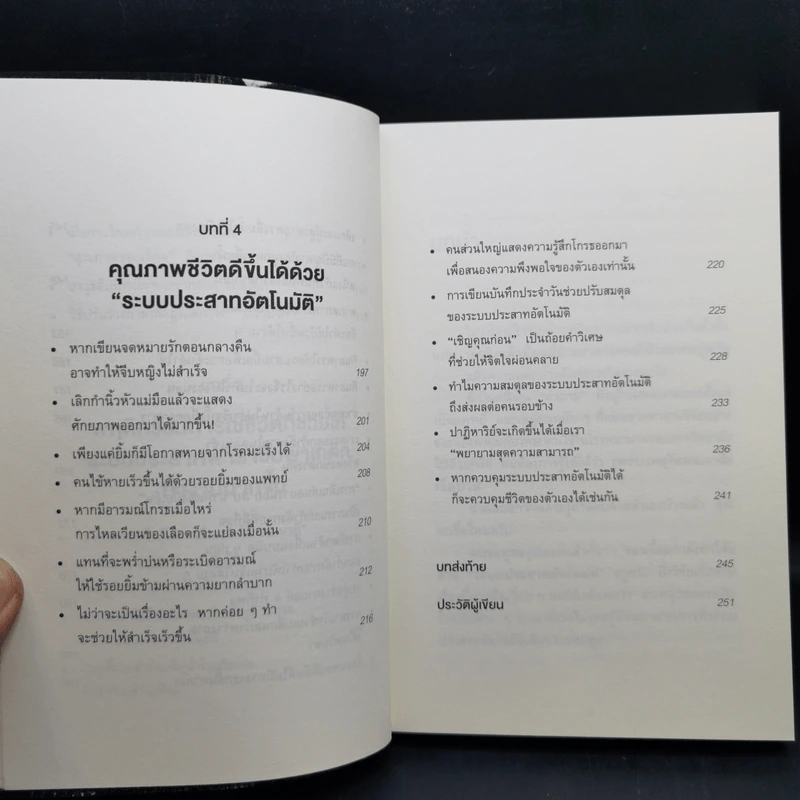 บทที่ 4
คุณภาพชีวิตดีขึ้นได้ด้วย
“ระบบประสาทอัตโนมัติ”
• หากเขียนจดหมายรักตอนกลางคืน
อาจทำให้จีบหญิงไม่สำเร็จ 197
• เลิกกำนิ้วหัวแม่มือแล้วจะแสดง
ศักยภาพออกมาได้มากขึ้น! 201
• เพียงแค่ยิ้มก็มีโอกาสหายจากโรคมะเร็งได้ 204
• คนไข้หายเร็วขึ้นได้ด้วยรอยยิ้มของแพทย์ 208
• หากมีอารมณ์โกรธเมื่อไหร่
การไหลเวียนของเลือดก็จะแย่ลงเมื่อนั้น 210
• แทนที่จะพร่ำบ่นหรือระเบิดอารมณ์
ให้ใช้รอยยิ้มข้ามผ่านความยากลำบาก 212
• ไม่ว่าจะเป็นเรื่องอะไร หากค่อย ๆ ทำ
จะช่วยให้สำเร็จเร็วขึ้น 216
• คนส่วนใหญ่แสดงความรู้สึกโกรธออกมา
เพื่อสนองความพึงพอใจของตัวเองเท่านั้น 220
• การเขียนบันทึกประจำวันช่วยปรับสมดุล
ของระบบประสาทอัตโนมัติ 225
• “เชิญคุณก่อน” เป็นถ้อยคำวิเศษ
ที่ช่วยให้จิตใจผ่อนคลาย 228
• ทำไมความสมดุลของระบบประสาทอัตโนมัติ
ถึงส่งผลต่อคนรอบข้าง 233
• ปาฏิหาริย์จะเกิดขึ้นได้เมื่อเรา
“พยายามสุดความสามารถ” 236
• หากควบคุมระบบประสาทอัตโนมัติได้
ก็จะควบคุมชีวิตของตัวเองได้เช่นกัน 241
บทส่งท้าย 245
ประวัติผู้เขียน 251